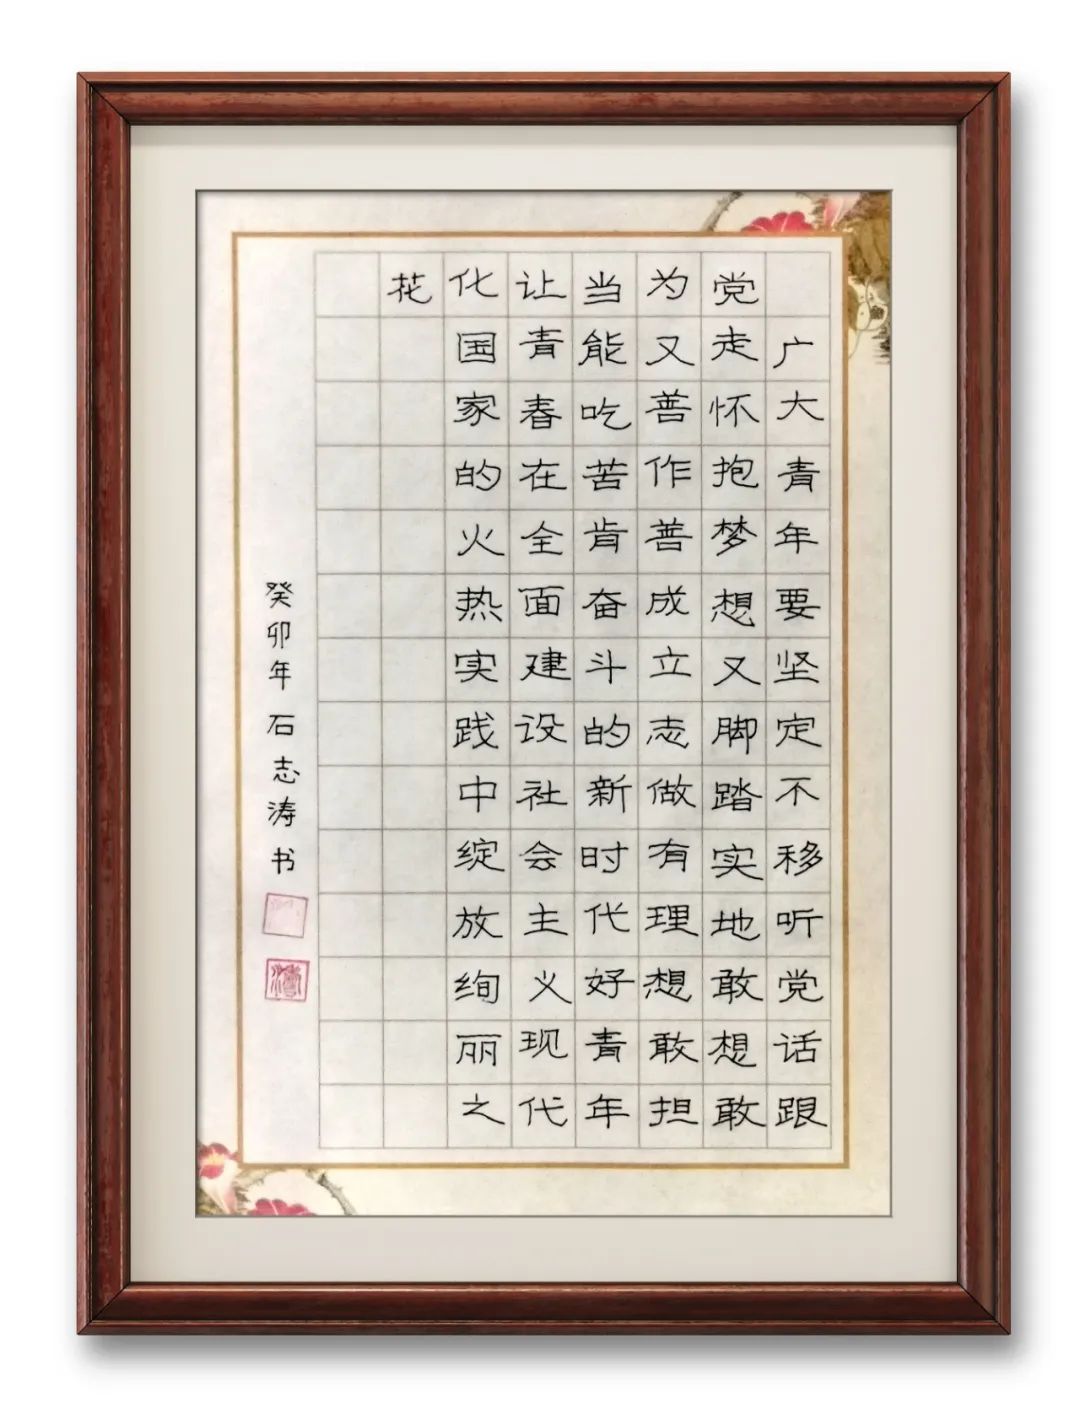 广大青年要坚定不移听党话跟
党走怀抱梦想又脚踏实地敢想敢
为又善作善成立志做有理想敢担
当能吃苦肯奋斗的新时代好青年
让青春在全面建设社会主义现代
化国家的火热实践中绽放绚丽之
花
癸卯年石志涛书